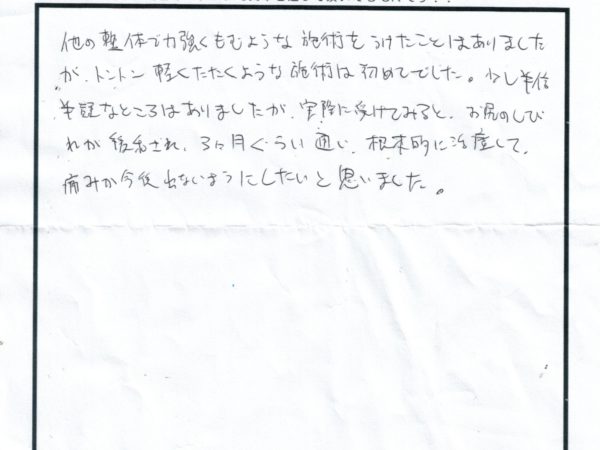 他の整体で力強くもむような施術をうけたことはありました
が、トントン軽くたたくような施術は初めてでした。少し半信
半疑なところはありましたが、実際に受けてみると、お尻のしび
れが緩和され、3ヶ月ぐらい通い、根本的に治療して、
痛みが今後出ないようにしたいと思いました。